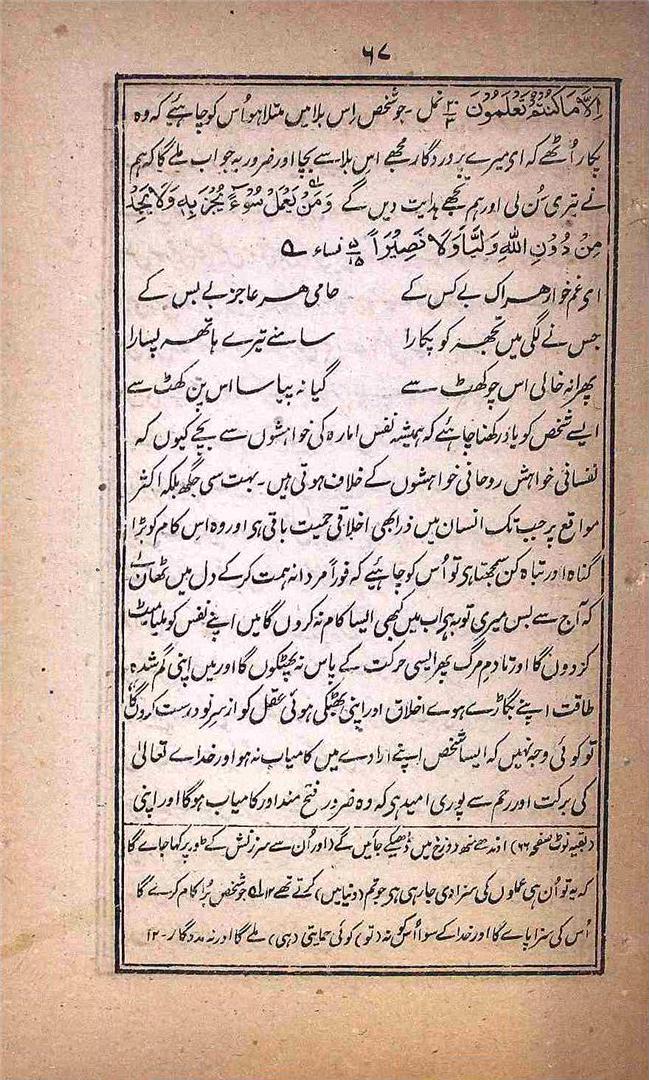 ۶۷
اِلَّا مَا كُنْتُمْ تَعْلَمُوْنَ ۲۰/۳ نمل ۔ جو شخص اس بلا میں مبتلا ہو اُس کو چاہئیے کہ وہ
پکار اُٹھے کہ ای میرے پروردگار مجھے اس بلا سے بچا اور ضرور یہ جواب ملے گا کہ ہم
نے تیری سُن لی اور ہم تجھے ہدایت دیں گے وَمَنْ يَعْمَلْ سُوْءً يُجْزَ بِهٖ وَلَا يَجِدْ
مِنْ دُوْنِ اللهِ وَلِيًّا وَلَا نَصِيْرًا ۵/۱۵ نساء ۵
ای غم خوار ہر اک بے کس کے حامی ہر عاجز بے بس کے
جس نے لگی میں تجھ کو پکارا سامنے تیرے ہاتھ پسارا
پھرا نہ خالی اس چوکھٹ سے گیا نہ پیاسا اس پن گھٹ سے
ایسے شخص کو یاد رکھنا چاہئے کہ ہمیشہ نفس امارہ کی خواہشوں سے بچے کیوں کہ
نفسانی خواہش روحانی خواہشوں کے خلاف ہوتی ہیں ۔ بہت سی جگہ بلکہ اکثر
مواقع پر جب تک انسان میں ذرا بھی اخلاقی حمیت باقی ہی اور وہ اس کام کو بڑا
گناہ اور تباہ کن سمجھتا ہی تو اُس کو چاہئیے کہ فوراً مردانہ ہمت کر کے دل میں ٹھان لے
کہ آج سے بس میری توبہ ہی اب میں کبھی ایسا کام نہ کروں گا میں اپنے نفس کو ملیامیٹ
کر دوں گا اور تا دمِ مرگ پھر ایسی حرکت کے پاس نہ پھٹکوں گا اور میں اپنی گم شدہ
طاقت اپنے بگاڑے ہوے اخلاق اور اپنی بھٹکی ہوئی عقل کو از سرِ نو درست کروں گا
تو کوئی وجہ نہیں کہ ایسا شخص اپنے ارادے میں کامیاب نہ ہو اور خداے تعالیٰ
کی برکت اور رحم سے پوری امید ہی کہ وہ ضرور فتح مند اور کامیاب ہوگا اور اپنی
(بقیہ نوٹ صفحہ ۶۶) اوندھے منھ دوزخ میں ڈھکیلے جائیں گے (اور اُن سے سرزنش کے طور پر کہا جاے گا
کہ یہ تو اُن ہی عملوں کی سزا دی جا رہی ہی جو تم (دنیا میں) کرتے تھے ۱۲ ۵ جو شخص بُرا کام کرے گا
اُس کی سزا پاے گا اور خدا کے سوا اُس کو نہ (تو) کوئی حمایتی (ہی) ملے گا اور نہ مددگار ۔ ۱۲